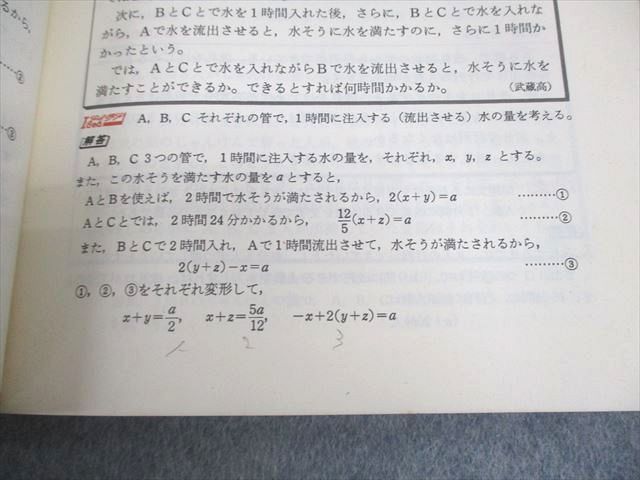 次に，BとCとで水を1時間入れた後，さらに，BとCとで水を入れな
がら，Aで水を流出させると，水そうに水を満たすのに，さらに1時間か
かったという。
では，AとCとで水を入れながらBで水を流出させると，水そうに水を
満たすことができるか。できるとすれば何時間かかるか。 (武蔵高)
A，B，Cそれぞれの管で，1時間に注入する（流出させる）水の量を考える。
解答
A，B，C 3つの管で，1時間に注入する水の量を，それぞれ，x，y，zとする。
また，この水そうを満たす水の量をaとすると，
AとBを使えば，2時間で水そうが満たされるから，2(x+y)=a ………①
AとCとでは，2時間24分かかるから，12/5(x+z)=a ………②
また，BとCで2時間入れ，Aで1時間流出させて，水そうが満たされるから，
2(y+z)-x=a ………③
①，②，③をそれぞれ変形して，
x+y=a/2， x+z=5a/12， -x+2(y+z)=a
1 2 3
るから，
……②
…③